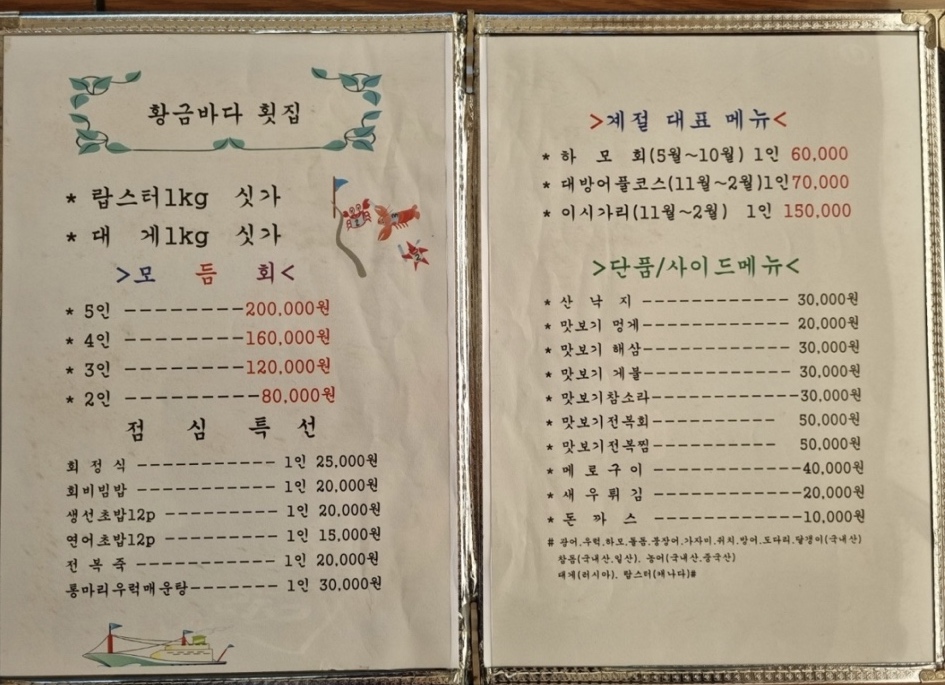 황금바다 횟집
* 랍스터1kg 싯가
* 대 게1kg 싯가
>모 듬 회<
* 5인 ---------200,000원
* 4인 ---------160,000원
* 3인 ---------120,000원
* 2인 ----------80,000원
점 심 특 선
회 정 식 ------------ 1인 25,000원
회비빔밥 ------------ 1인 20,000원
생선초밥12p ---------- 1인 20,000원
연어초밥12p ---------- 1인 15,000원
전 복 죽 ------------ 1인 20,000원
통마리우럭매운탕-------- 1인 30,000원
>계절 대표 메뉴<
* 하 모 회(5월~10월) 1인 60,000
* 대방어풀코스(11월~2월)1인70,000
* 이시가리(11월~2월) 1인 150,000
>단품/사이드메뉴<
* 산 낙 지 ------------- 30,000원
* 맛보기 멍게------------- 20,000원
* 맛보기 해삼------------- 30,000원
* 맛보기 게불------------- 30,000원
* 맛보기참소라-------------30,000원
* 맛보기전복회----------- 50,000원
* 맛보기전복찜----------- 50,000원
* 메 로 구 이 -------------40,000원
* 새 우 튀 김 -------------20,000원
* 돈 까 스 --------------10,000원
# 광어.우럭.하모.돌돔.붕장어.가자미.쥐치.방어.도다리.달갱이(국내산)
참돔(국내산.일산). 농어(국내산.중국산)
대게(러시아). 랍스터(캐나다)#